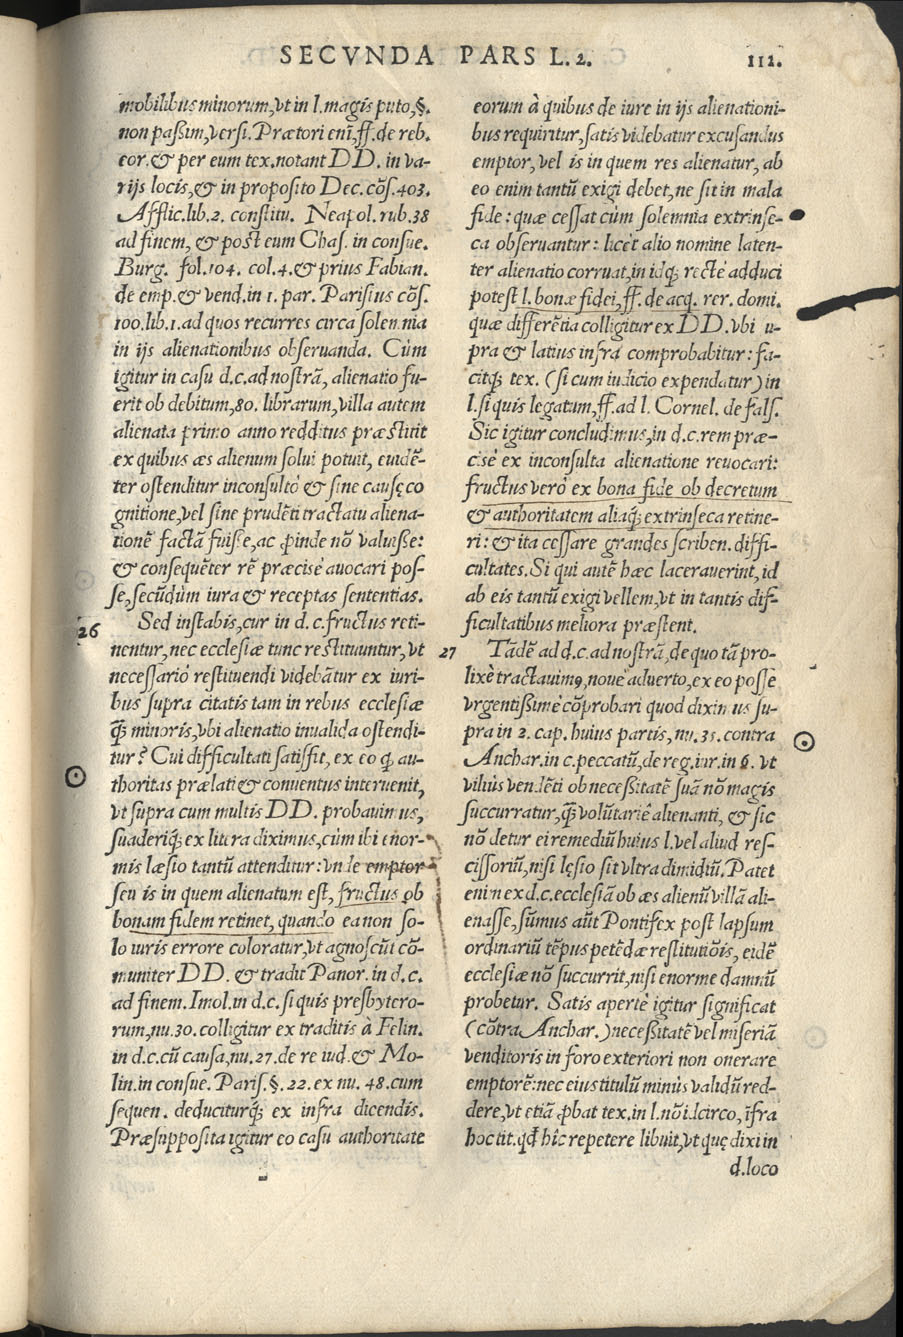 SECVNDA PARS L. 2. 112.
mobilibus minorum, vt in l. magis puto, §.
non paßim, versi. Prætori enĩ, ff. de reb.
eor. & per eum tex. notant DD. in va-
rijs locis, & in proposito Dec. cõs. 403.
Afflic. lib. 2. constitu. Neapol. rub. 38
ad finem, & post eum Chas. in consue.
Burg. fol. 104. col. 4. & prius Fabian.
de emp. & vend. in 1. par. Parisius cõs.
100. lib. 1. ad quos recurres circa solennia
in ijs alienationibus obseruanda. Cùm
igitur in casu d. c. ad nostrã, alienatio fu-
erit ob debitum, 80. librarum, villa autem
alienata primo anno redditus præstitit
ex quibus æs alienum solui potuit, euidẽ-
ter ostenditur inconsultò & sine causę co
gnitione, vel sine prudẽti tractatu aliena-
tionẽ factã fuisse, ac ꝓinde nõ valuiße:
& consequẽter rẽ præcisè auocari pos-
se, secũdùm iura & receptas sententias.
26 Sed instabis, cur in d. c. fructus reti-
nentur, nec ecclesiæ tunc restituuntur, vt
necessariò restituendi videbãtur ex iuri-
bus supra citatis tam in rebus ecclesiæ
q̃ minoris, vbi alienatio inualida ostendi-
tur? Cui difficultati satisfit, ex eo q̃ au-
thoritas prælati & conuentus interuenit,
vt supra cum multis DD. probauimus,
suaderiq́; ex litera diximus, cùm ibi enor-
mis læsio tantũ attenditur: vnde emptor
seu is in quem alienatum est, fructus ob
bonam fidem retinet, quando ea non so-
lo iuris errore coloratur, vt agnoscũt cõ-
muniter DD. & tradit Panor. in d. c.
ad finem. Imol. in d. c. si quis presbytero-
rum, nu. 30. colligitur ex traditis à Felin.
in d. c. cũ causa, nu. 27. de re iud. & Mo-
lin. in consue. Paris. §. 22. ex nu. 48. cum
sequen. deduciturq́; ex infra dicendis.
Præsupposita igitur eo casu authoritate
eorum à quibus de iure in ijs alienationi-
bus requiritur, satis videbatur excusandus
emptor, vel is in quem res alienatur, ab
eo enim tantũ exigi debet, ne sit in mala
fide: quæ cessat cùm solemnia extrinse-
ca obseruantur: licet alio nomine laten-
ter alienatio corruat, in idq́; rectè adduci
potest l. bonæ fidei, ff. de acq. rer. domi.
quæ differẽtia colligitur ex DD. vbi u-
pra & latius infrà comprobabitur: fa-
citq́; tex. (si cum iudicio expendatur) in
l. si quis legatum, ff. ad l. Cornel. de fals.
Sic igitur concludimus, in d. c. rem præ-
cisè ex inconsulta alienatione reuocari:
fructus verò ex bona fide ob decretum
& authoritatem aliaq́; extrinseca retine-
ri: & ita cessare grandes scriben. diffi-
cultates. Si qui autẽ hæc lacerauerint, id
ab eis tantũ exigi vellem, vt in tantis dif-
ficultatibus meliora præstent.
27 Tãdẽ ad d. c. ad nostrã, de quo tã pro-
lixè tractauimꝰ, nouè aduerto, ex eo posse
vrgentißimè cõprobari quod diximus su-
pra in 2. cap. huius partis, nu. 35. contra
Anchar. in c. peccatũ, de reg. iur. in 6. vt
viliùs vendẽti ob necessitatẽ suã nõ magis
succurratur, q̃ volũtariè alienanti, & sic
nõ detur ei remediũ huius l. vel aliud res-
cissoriũ, nisi lęsio sit vltra dimidiũ. Patet
enim ex d. c. ecclesiã ob æs alienũ villã ali-
enasse, sũmus aũt Pontifex post lapsum
ordinariũ tẽpus petẽdæ restitutiõis, eidẽ
ecclesiæ nõ succurrit, nisi enorme damnũ
probetur. Satis apertè igitur significat
(cõtra Anchar.) neceßitatẽ vel miseriã
venditoris in foro exteriori non onerare
emptorẽ: nec eius titulũ minùs validũ red-
dere, vt etiã ꝓbat tex. in l. nõ idcirco, ĩfra
hoc tit. qd̃ hîc repetere libuit, vt quę dixi in
d. loco